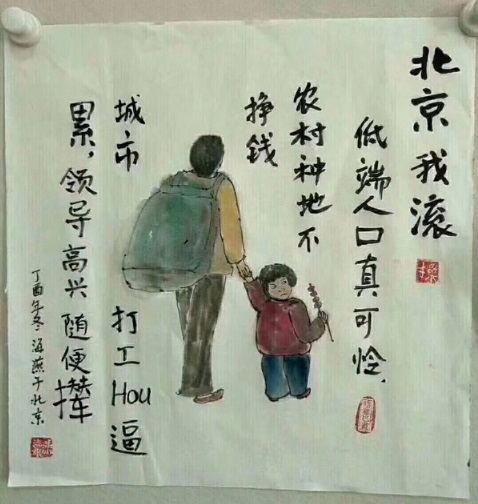 北京我滚
低端人口真可怜,
农村种地不
挣钱
城市打工Hou逼
累,领导高兴随便撵
丁酉年冬海燕于北京